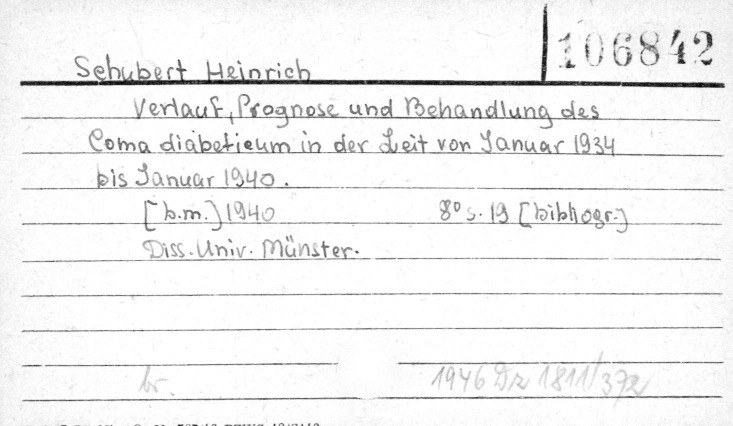 106842
Schubert Heinrich
Verlauf, Prognose und Behandlung des
Coma diabeticum in der Zeit von Januar 1934
bis Januar 1940.
[b.m.] 1940 8° s. 19 [bibliogr.]
Diss. Univ. Münster.
br. 1946 Dz 1811/372